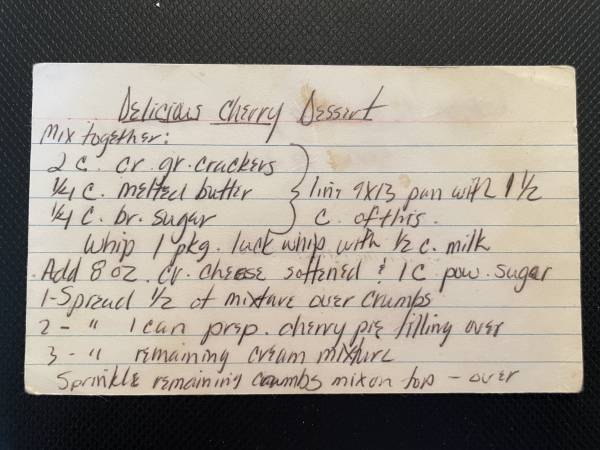 Delicious Cherry Dessert
Mix together:
2 c. cr. gr. crackers
1/4 c. melted butter } line 9x13 pan with 1 1/2
1/4 c. br. sugar c. of this.
Whip 1 pkg. luck whip with 1/2 c. milk
Add 8 oz. cr. cheese softened & 1 c pow. sugar
1-Spread 1/2 of mixture over crumbs
2 - " 1 can prep. cherry pie filling over
3 - " remaining cream mixture
Sprinkle remaining crumbs mix on top - over